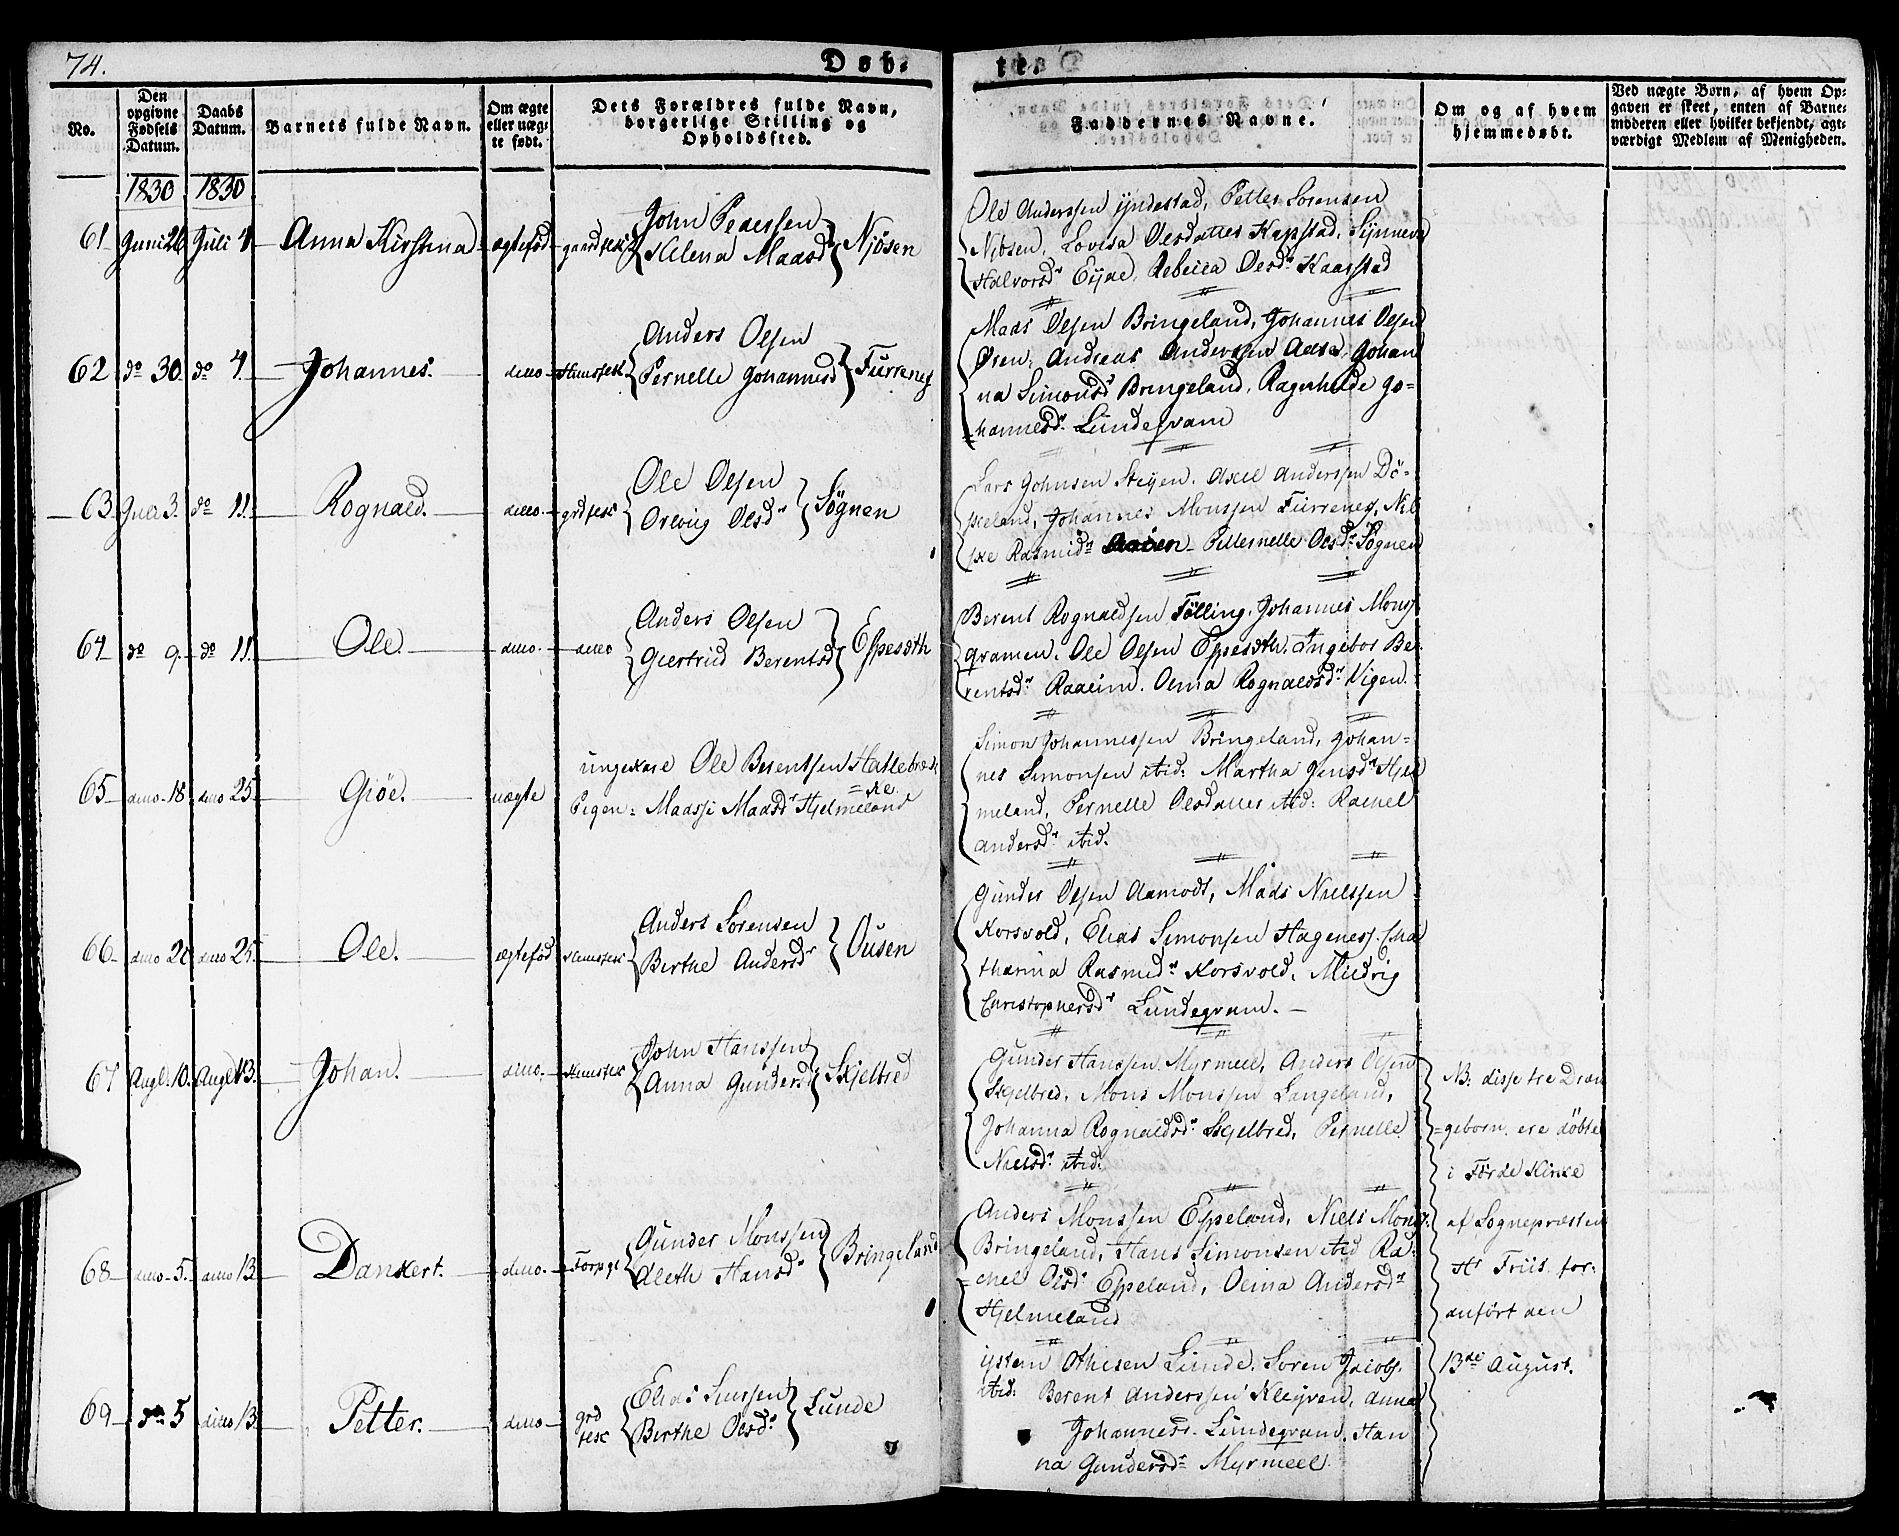 74.
Døb-
te.
No.
Den
opgivne
Fødsels
Datum.
Daabs
Datum.
Barnets fulde Navn.
Om ægte
eller uæg-
te født.
Dets Forældres fulde Navn,
borgerlige Stilling og
Opholdssted.
Faddernes Navne.
Om og af hvem
hjemmedøbt.
Ved uægte Børn, af hvem Op-
gaven er skeet, enten af Barne-
moderen eller hvilket bekjendt, agt-
værdigt Medlem af Menigheden.
1830 1830
61 Juni 26 Juli 4 Anna Kirstina ægtefød
John Pederssen
Helena Maasd
Njøsen
Ole Anderssen Yndestad, Petter Sørensen
Njøsen, Lovisa Olesdatter Hapstad, Synneva
Halvorsdr Eyde, Rebecca Olesdr Kaarstad
62 do 30 do 4. Johannes. dmo
Anders Olsen
Pernelle Johannesd
Furrenes
Mads Olsen Bringeland, Johannes Olsen
Øren, Andreas Anderssen Aasa, Johan
na Simonsdr Bringeland, Ragnhilde Jo=
hannesdr Lundeqvam
63 3. do 11. Rognald. dmo
Ole Olsen
Olsdr
Søgnen
Lars Johnsen Steyen. Axel Anderssen Dö=
skeland, Johannes Monssen Furrenes, Nil
ske Rasmidr Petternelle Olsdr Søgnen
64 do 9. do 11. Ole. dmo. dmo
Anders Olsen
Giertrud Berentsd
Espesdth
Berent Rognaldsen Fölling, Johannes Mons
qvamen. Ole Olsen Espesdth. Ingebor Be-
rentsdr Raaeim. Olina Rognaldsdr Vigen.
65 dmo 18. dmo 25. Giöe. uægte
ungekarl Ole Berentsen Hatlebræk
=ke
Pigen: Maassi Maadsdr Hjelmeland
Simon Johannessen Bringeland, Johan=
nes Simonsen ibid: Martha Jensdr Hjel
meland, Pernelle Olsdatter ibid: Rachel
Andersdr ibid.
66 dmo 20 dmo 25. Ole. ægtefød
Anders Sørensen
Birthe Andersdr
Ousen
Gunder Olsen Aamodt, Mads Nielssen
Korsvold, Elias Simonsen Hagenes. Cha
tharina Rasmidr Korsvold, Mildrig
Christophersdr Lundeqvam.
67 Augl. 10. Augl 13. Johan. dmo.
John Hanssen
Anna Gundersd
Skjelbred
Gunder Hanssen Myrmeel, Anders Olsen
Skjelbred, Mons Monssen Langeland,
Johanna Rognaldsdr Skjelbred, Pernelle
Nielsdr ibid.
NB: disse tre Dræn
=gebørn ere döbte
i Förde Kirke
af Sognepræsten
Hr Friis for:
anfört den
13de August.
68 dmo 5. dmo 13. Dankert. dmo.
Gunder Monssen
Aleth Hansdr
Bringeland
Anders Monssen Espeland, Niels Mons.
Bringeland, Hans Simonsen ibid Ra-
chel Olsdr Espeland, Olina Andersdr
Hjelmeland
69 do 5 dmo 13. Petter. dmo grd
Elias
Birthe Olsdr
Lunde
Ysten Othesen Lunde. Sören Jacobs.
ibid: Berent Anderssen Kleyven, Anna
Johannesdr Lundeqvam. Han
na Gundersdr Myrmeel.